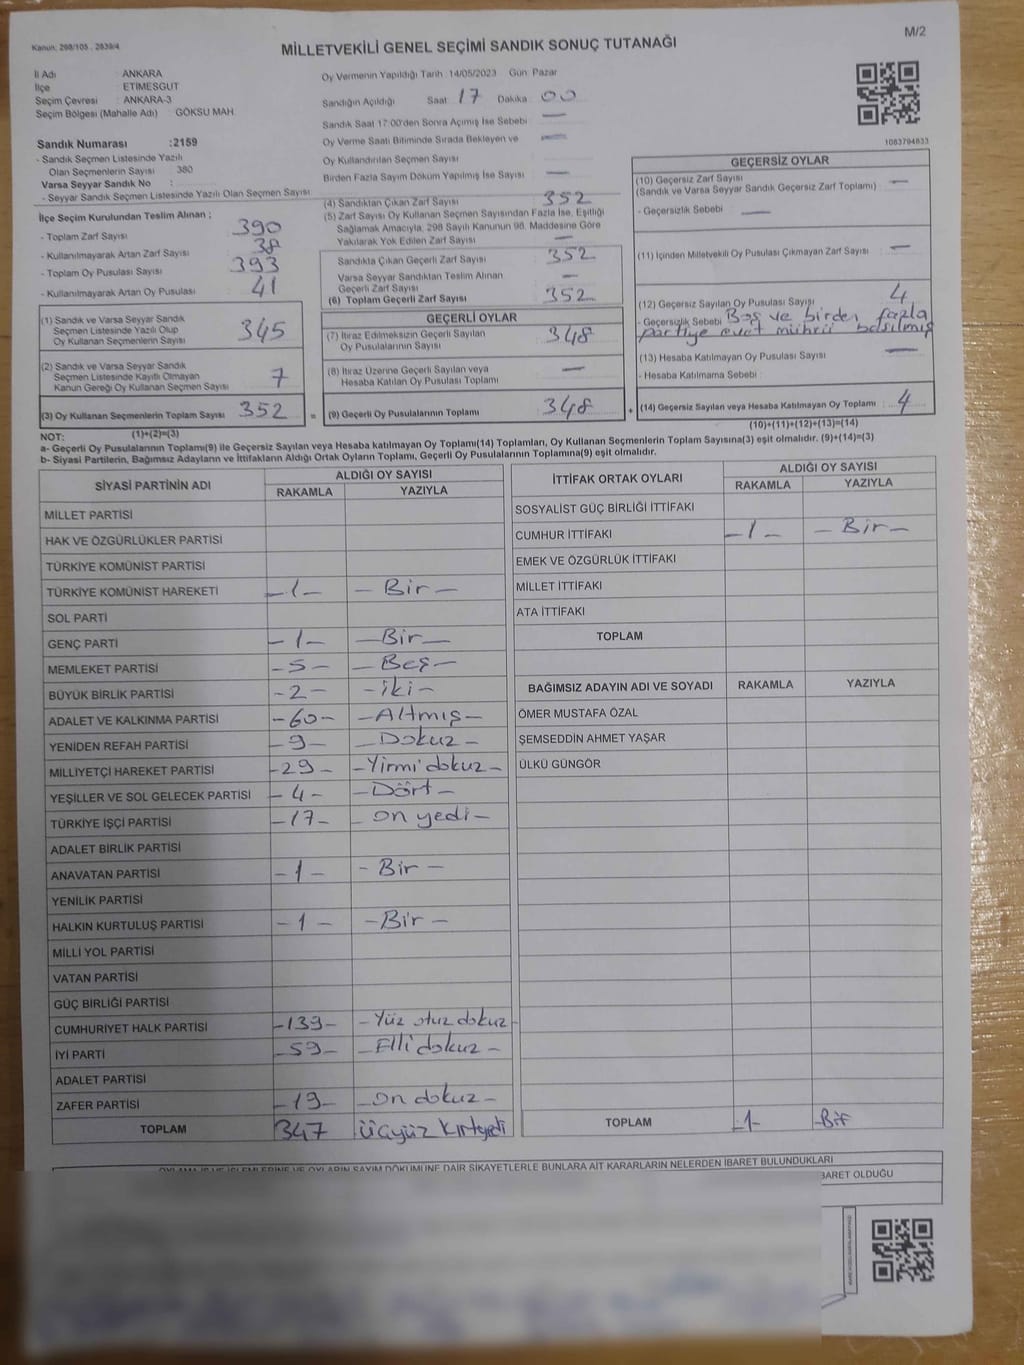 Kanun: 298/105 , 2839/4
M/2
MİLLETVEKİLİ GENEL SEÇİMİ SANDIK SONUÇ TUTANAĞI
İl Adı : ANKARA
İlçe : ETİMESGUT
Seçim Çevresi : ANKARA-3
Seçim Bölgesi (Mahalle Adı) : GÖKSU MAH.
Sandık Numarası :2159
- Sandık Seçmen Listesinde Yazılı
Olan Seçmenlerin Sayısı : 380
Varsa Seyyar Sandık No :
- Seyyar Sandık Seçmen Listesinde Yazılı Olan Seçmen Sayısı :
İlçe Seçim Kurulundan Teslim Alınan ;
- Toplam Zarf Sayısı : 390
- Kullanılmayarak Artan Zarf Sayısı : 38
- Toplam Oy Pusulası Sayısı : 393
- Kullanılmayarak Artan Oy Pusulası : 41
(1) Sandık ve Varsa Seyyar Sandık
Seçmen Listesinde Yazılı Olup
Oy Kullanan Seçmenlerin Sayısı : 345
(2) Sandık ve Varsa Seyyar Sandık
Seçmen Listesinde Kayıtlı Olmayan
Kanun Gereği Oy Kullanan Seçmen Sayısı : 7
(3) Oy Kullanan Seçmenlerin Toplam Sayısı : 352 =
Oy Vermenin Yapıldığı Tarih :14/05/2023 Gün: Pazar
Sandığın Açıldığı Saat : 17 Dakika : 00
Sandık Saat 17:00'den Sonra Açımış İse Sebebi : —
Oy Verme Saati Bitiminde Sırada Bekleyen ve —
Oy Kullandırılan Seçmen Sayısı :
Birden Fazla Sayım Döküm Yapılmış İse Sayısı : —
(4) Sandıktan Çıkan Zarf Sayısı : 352
(5) Zarf Sayısı Oy Kullanan Seçmen Sayısından Fazla İse, Eşitliği
Sağlamak Amacıyla, 298 Sayılı Kanunun 98. Maddesine Göre
Yakılarak Yok Edilen Zarf Sayısı : —
Sandıkta Çıkan Geçerli Zarf Sayısı : 352
Varsa Seyyar Sandıktan Teslim Alınan
Geçerli Zarf Sayısı : —
(6) Toplam Geçerli Zarf Sayısı : 352
GEÇERLİ OYLAR
(7) İtiraz Edilmeksizin Geçerli Sayılan
Oy Pusulalarının Sayısı : 348
(8) İtiraz Üzerine Geçerli Sayılan veya
Hesaba Katılan Oy Pusulası Toplamı : —
(9) Geçerli Oy Pusulalarının Toplamı : 348 +
1083794833
GEÇERSİZ OYLAR
(10) Geçersiz Zarf Sayısı : —
(Sandık ve Varsa Seyyar Sandık Geçersiz Zarf Toplamı)
- Geçersizlik Sebebi : —
(11) İçinden Milletvekili Oy Pusulası Çıkmayan Zarf Sayısı : —
(12) Geçersiz Sayılan Oy Pusulası Sayısı : 4
- Geçersizlik Sebebi : Boş ve birden fazla
partiye evet mührü basılmış
(13) Hesaba Katılmayan Oy Pusulası Sayısı : —
- Hesaba Katılmama Sebebi :
(14) Geçersiz Sayılan veya Hesaba Katılmayan Oy Toplamı : 4
(1)+(2)=(3)
(10)+(11)+(12)+(13)=(14)
NOT:
a- Geçerli Oy Pusulalarının Toplamı(9) ile Geçersiz Sayılan veya Hesaba katılmayan Oy Toplamı(14) Toplamları, Oy Kullanan Seçmenlerin Toplam Sayısına(3) eşit olmalıdır. (9)+(14)=(3)
b- Siyasi Partilerin, Bağımsız Adayların ve İttifakların Aldığı Ortak Oyların Toplamı, Geçerli Oy Pusulalarının Toplamına(9) eşit olmalıdır.
SİYASİ PARTİNİN ADI ALDIĞI OY SAYISI
RAKAMLA YAZIYLA
MİLLET PARTİSİ
HAK VE ÖZGÜRLÜKLER PARTİSİ
TÜRKİYE KOMÜNİST PARTİSİ
TÜRKİYE KOMÜNİST HAREKETİ -1- - Bir -
SOL PARTİ
GENÇ PARTİ -1- - Bir -
MEMLEKET PARTİSİ -5- - Beş -
BÜYÜK BİRLİK PARTİSİ -2- - iki -
ADALET VE KALKINMA PARTİSİ -60- - Altmış -
YENİDEN REFAH PARTİSİ -9- - Dokuz -
MİLLİYETÇİ HAREKET PARTİSİ -29- - Yirmi dokuz -
YEŞİLLER VE SOL GELECEK PARTİSİ -4- - Dört -
TÜRKİYE İŞÇİ PARTİSİ -17- - on yedi -
ADALET BİRLİK PARTİSİ
ANAVATAN PARTİSİ -1- - Bir -
YENİLİK PARTİSİ
HALKIN KURTULUŞ PARTİSİ -1- - Bir -
MİLLİ YOL PARTİSİ
VATAN PARTİSİ
GÜÇ BİRLİĞİ PARTİSİ
CUMHURİYET HALK PARTİSİ -139- - Yüz otuz dokuz -
İYİ PARTİ -59- - Elli dokuz -
ADALET PARTİSİ
ZAFER PARTİSİ -19- - on dokuz -
TOPLAM 347 üçyüz kırkyedi
İTTİFAK ORTAK OYLARI ALDIĞI OY SAYISI
RAKAMLA YAZIYLA
SOSYALİST GÜÇ BİRLİĞİ İTTİFAKI
CUMHUR İTTİFAKI -1- - Bir -
EMEK VE ÖZGÜRLÜK İTTİFAKI
MİLLET İTTİFAKI
ATA İTTİFAKI
TOPLAM
BAĞIMSIZ ADAYIN ADI VE SOYADI RAKAMLA YAZIYLA
ÖMER MUSTAFA ÖZAL
ŞEMSEDDİN AHMET YAŞAR
ÜLKÜ GÜNGÖR
TOPLAM -1- -Bir
OYLAMA İŞ VE İŞLEMLERİNE VE OYLARIN SAYIM DÖKÜMÜNE DAİR ŞİKAYETLERLE BUNLARA AİT KARARLARIN NELERDEN İBARET BULUNDUKLARI
BARET OLDUĞU